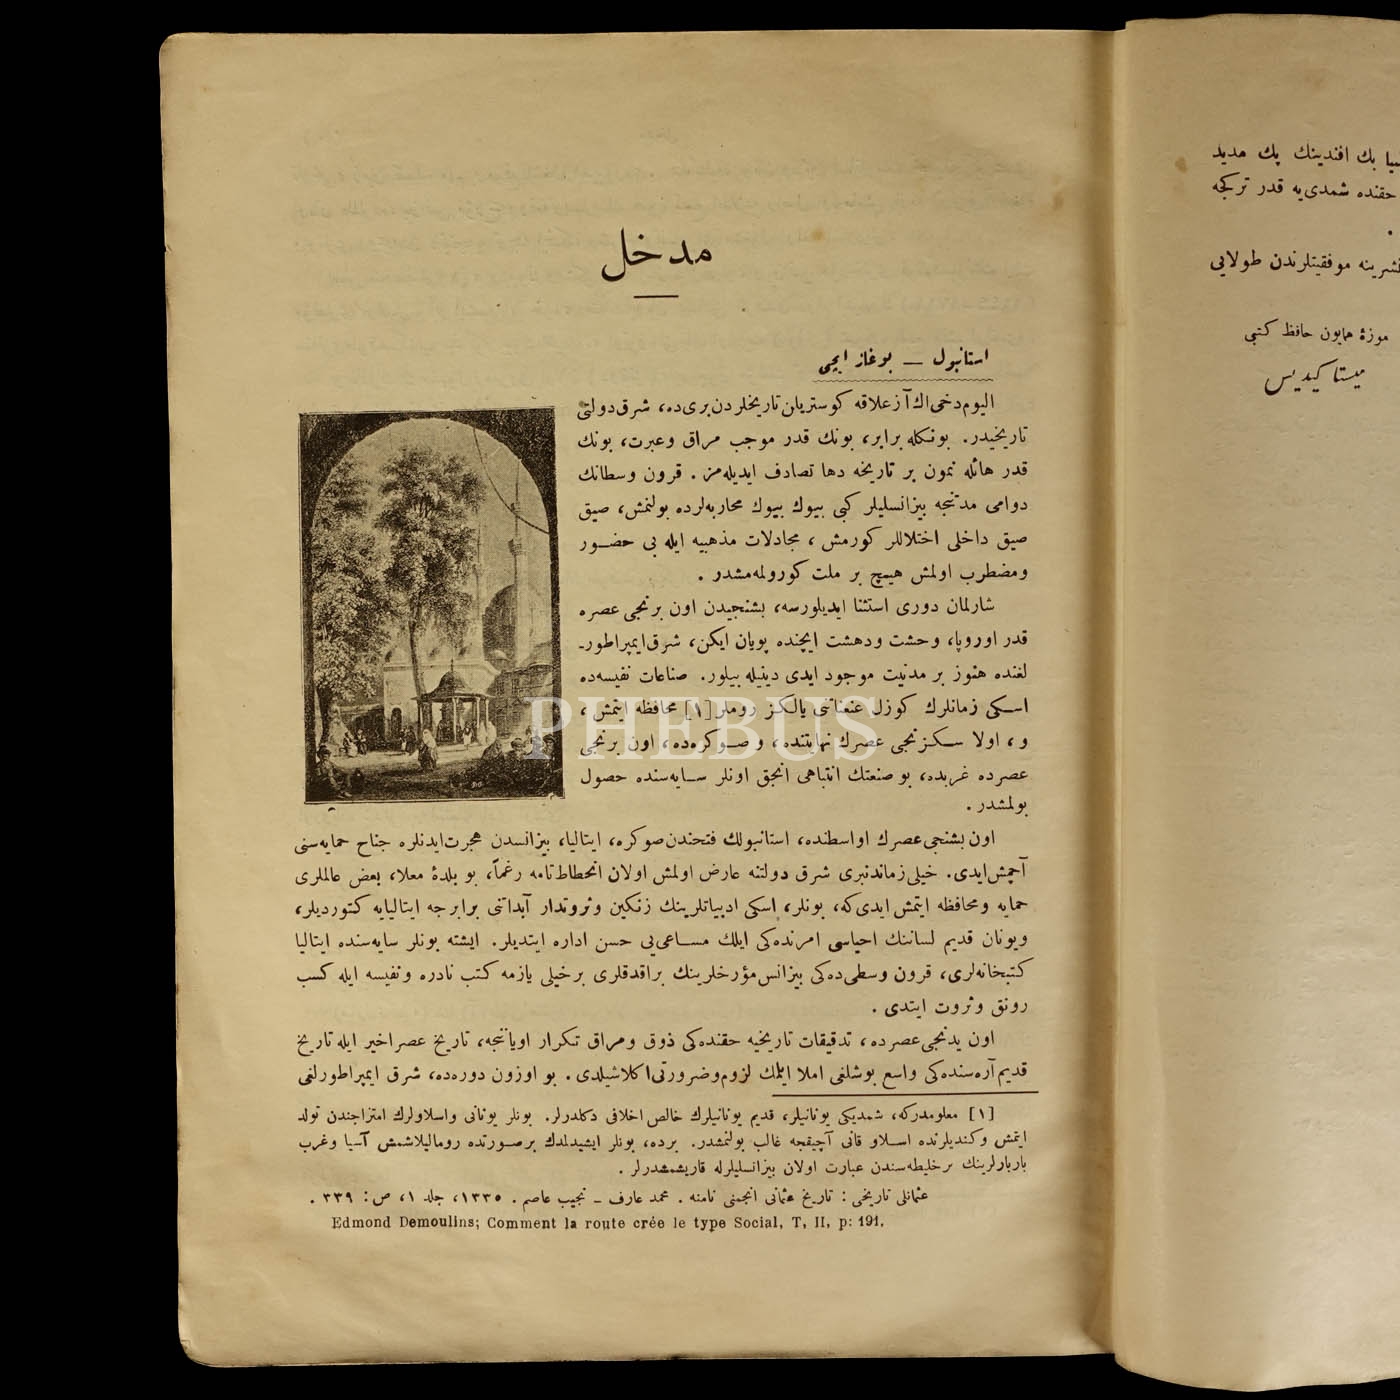 مدخل
استانبول — بوغاز ایچی
الیوم دخی اك آز علاقه كوستریلن تاریخلردن بری ده، شرق دولتی
تاریخیدر. بونكله برابر، بونك قدر موجب مراق وعبرت، بونك
قدر هائله نمون بر تاریخه دها تصادف ایدیله مز. قرون وسطانك
دوامی مدتنجه بیزانسلیلر كبی بیوك بیوك محاربه لرده بولنمش، صیق
صیق داخلی اختلاللر كورمش، مجادلات مذهبیه ایله بی حضور
ومضطرب اولمش هیچ بر ملت كورولمه مشدر.
شارلمان دوری استثنا ایدیلورسه، بشنجیدن اون برنجی عصره
قدر اوروپا، وحشت ودهشت ایچنده پویان ایكن، شرق ایمپراطور-
لغنده هنوز بر مدنیت موجود ایدی دینیله بیلور. صناعات نفیسه ده
اسكی زمانلرك كوزل عنعناتنی یالكز روملر [١] محافظه ایتمش،
و، اولا سكزنجی عصرك نهایتنده، وصوكره ده، اون برنجی
عصرده غربده، بو صنعتك انتباهی انجق اونلر سایه سنده حصول
بولمشدر.
اون بشنجی عصرك اواسطنده، استانبولك فتحندن صوكره، ایتالیا، بیزانسدن هجرت ایدنلره جناح حمایه سنی
آچمش ایدی. خیلی زماندنبری شرق دولتنه عارض اولمش اولان انحطاط تامه رغماً، بو بلدۀ معلا، بعض عالملری
حمایه ومحافظه ایتمش ایدی كه، بونلر، اسكی ادبیاتلرینك زنكین وثروتدار آبداتنی برابرجه ایتالیایه كتوردیلر،
ویونان قدیم لساننك احیاسی امرنده كی ایلك مساعی یی حسن اداره ایتدیلر. ایشته بونلر سایه سنده ایتالیا
كتبخانه لری، قرون وسطی ده كی بیزانس مؤرخلرینك براقدقلری برخیلی یازمه كتب نادره ونفیسه ایله كسب
رونق وثروت ایتدی.
اون یدنجی عصرده، تدقیقات تاریخیه حقنده كی ذوق ومراق تكرار اویاننجه، تاریخ عصر اخیر ایله تاریخ
قدیم آره سنده كی واسع بوشلغی املا ایتمك لزوم وضرورتی اكلاشیلدی. بو اوزون دوره ده، شرق ایمپراطورلغی
[١] معلومدركه، شمدیكی یونانیلر، قدیم یونانیلرك خالص اخلافی دكلدرلر. بونلر یونانی واسلاولرك امتزاجندن تولد
ایتمش وكندیلرنده اسلاو قانی آچیقجه غالب بولنمشدر. برده، بونلر ایشیدلمدك برصورتده رومالیلاشمش آسیا وغرب
باربارلرینك برخلیطه سندن عبارت اولان بیزانسلیلرله قاریشمشدرلر.
عثمانلی تاریخی: تاریخ عثمانی انجمنی نامنه. محمد عارف - نجیب عاصم. ١٣٣٥، جلد ١، ص: ٣٣٩.
Edmond Demoulins; Comment la route crée le type Social, T, II, p: 191,
PHEBUS
بك افندینك پك مدید
حقنده شمدی یه قدر تركجه
نشرینه موفقیتلرندن طولایی
موزۀ همایون حافظ كتبی
میستاكیدیس